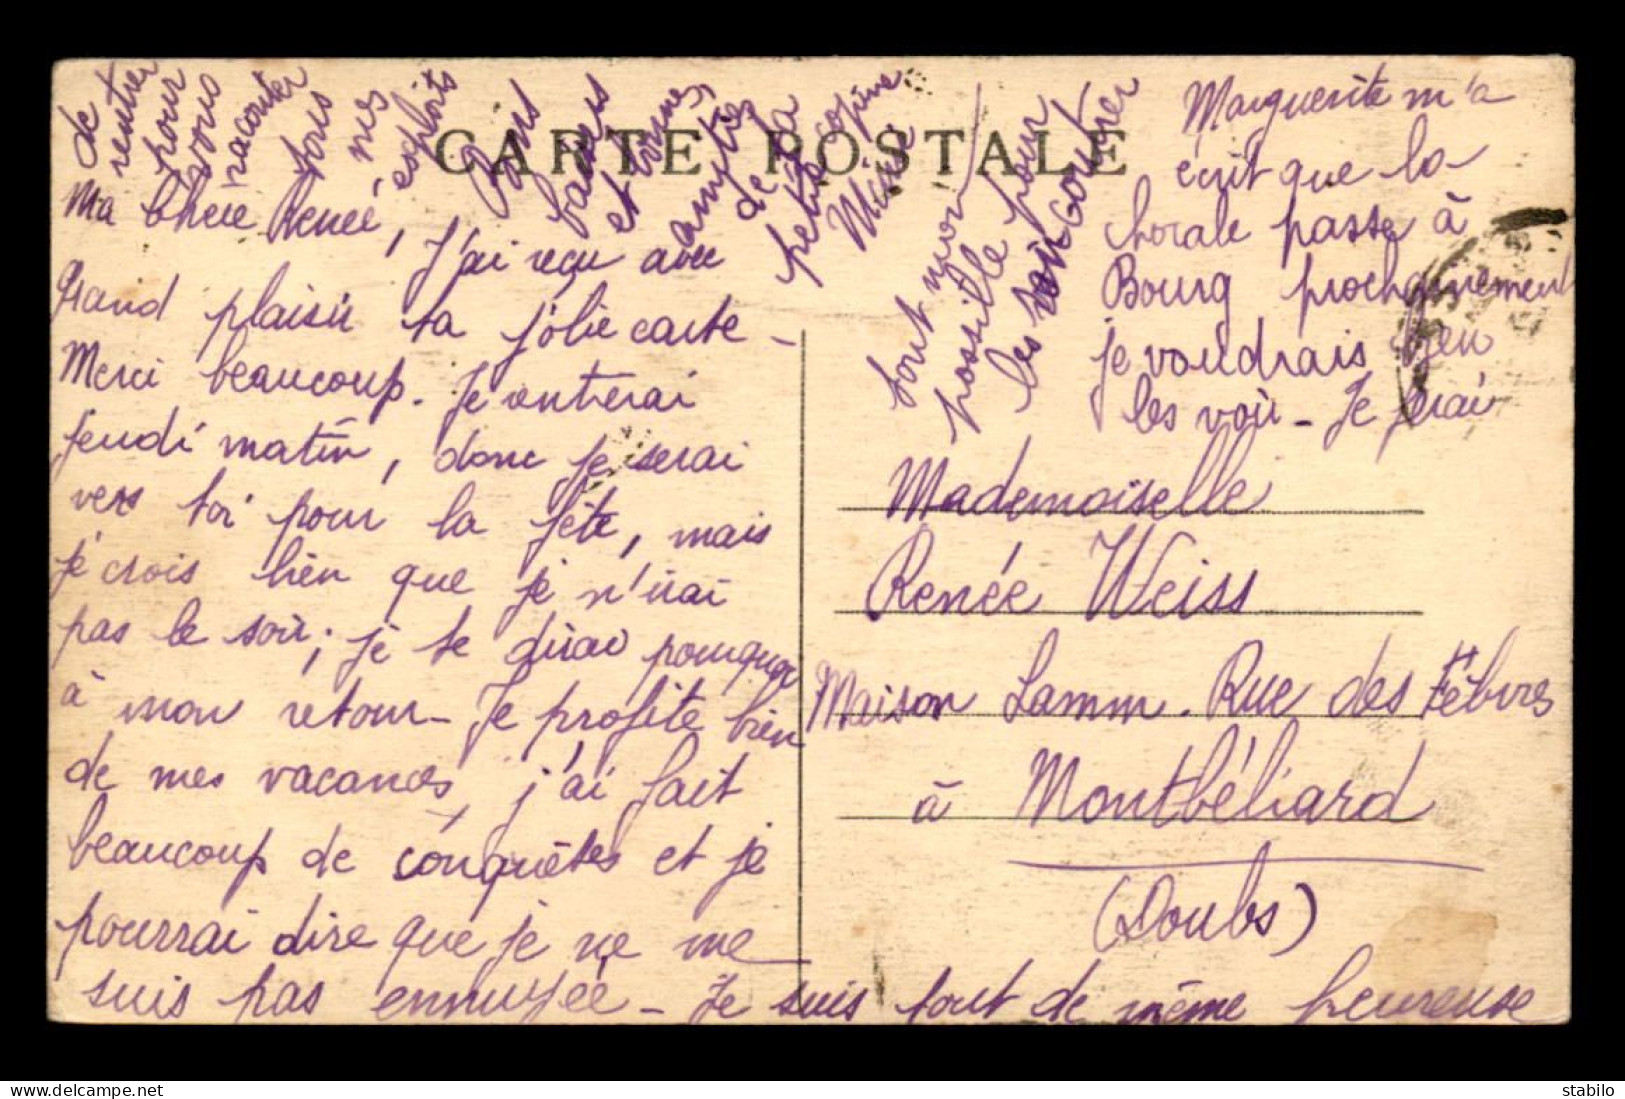 CARTE POSTALE
Ma chère Renée,
J'ai reçu avec
grand plaisir ta jolie carte -
Merci beaucoup. Je rentrerai
jeudi matin, donc je serai
vers toi pour la fête, mais
je crois bien que je n'irai
pas le soir ; je te dirai pourquoi
à mon retour - Je profite bien
de mes vacances, j'ai fait
beaucoup de conquêtes et je
pourrai dire que je ne me
suis pas ennuyée - Je suis tout de même heureuse
de
rentrer
pour
vous
raconter
tous
mes
exploits
Bons
baisers
et bonnes
amitiés
de la
petite copine
Marguerite m'a
écrit que la
chorale passe à
Bourg prochainement
je voudrais bien
les voir - Je ferai
tout mon
possible pour
les voir
Mademoiselle
Renée Weiss
Maison Lamm. Rue des Fèbvres
à Montbéliard
(Doubs)
delcampe.net
stabilo